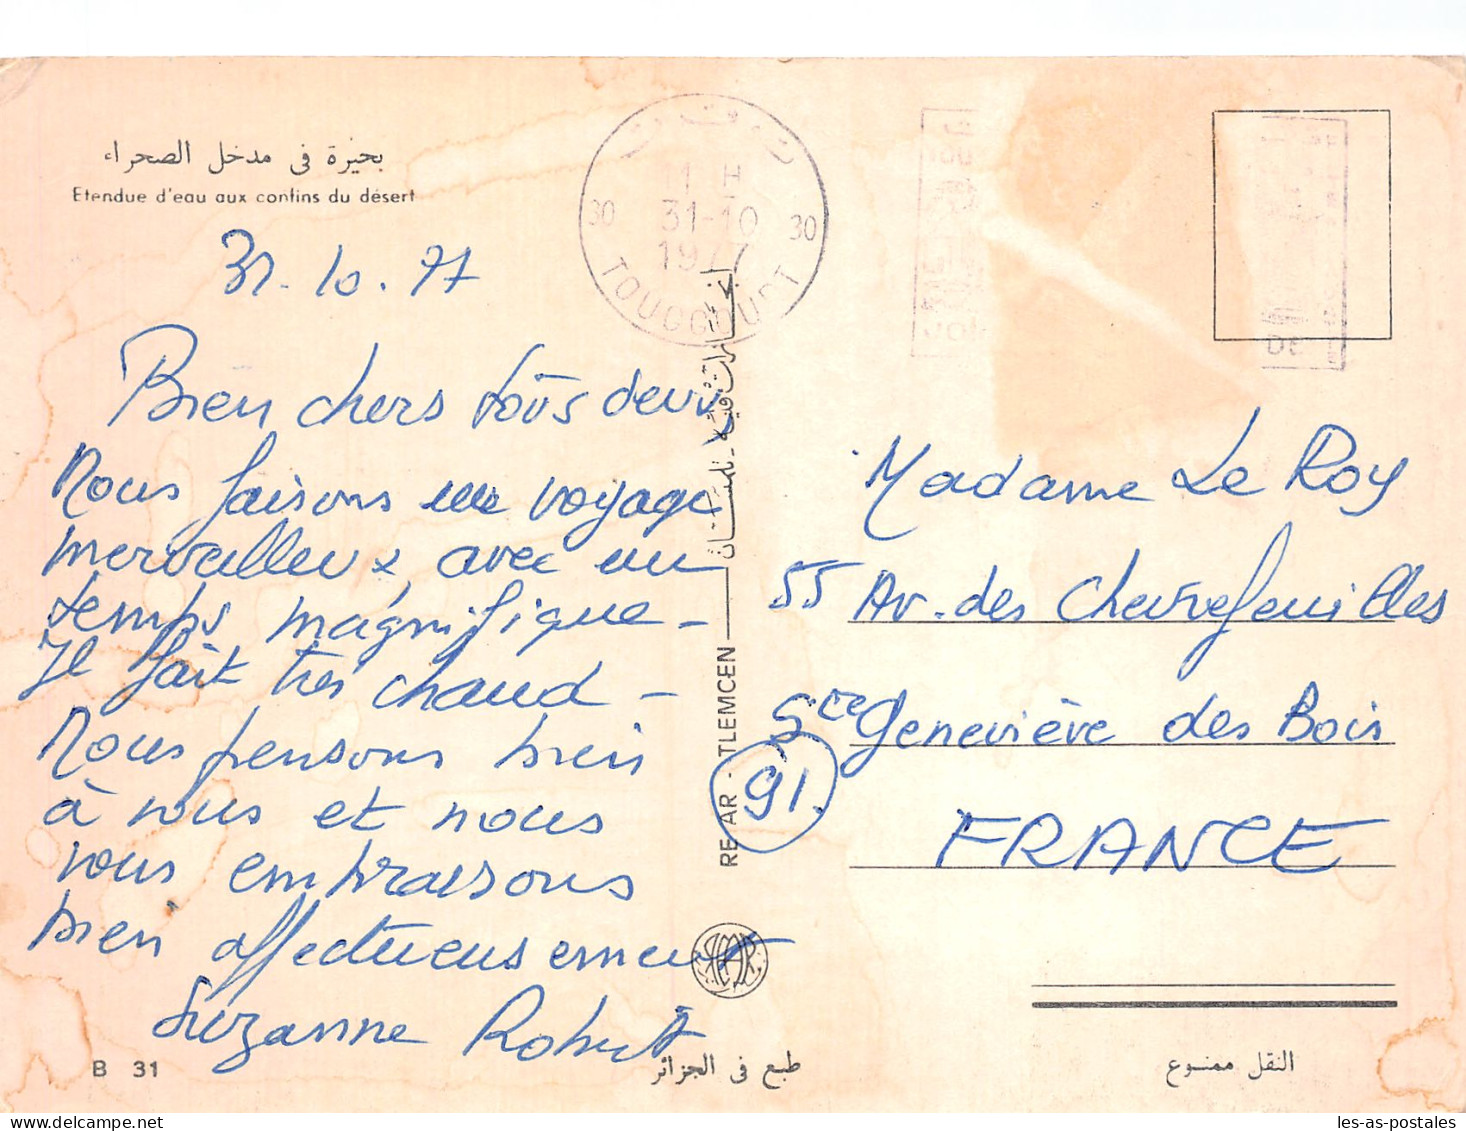 بحيرة في مدخل الصحراء
Etendue d'eau aux confins du désert
31-10-77
Bien chers tous deux
Nous faisons un voyage
merveilleux avec un
temps magnifique -
Il fait très chaud -
Nous pensons bien
à vous et nous
vous embrassons
bien affectueusement
Suzanne Robert
B 31
30 11 H 30
31-10
1977
TOUGGOURT
RE AR - TLEMCEN
طبع في الجزائر
DE
Madame Le Roy
55 Av. des Chevrefeuilles
Ste Geneviève des Bois
91.
FRANCE
النقل ممنوع
les-as-postales
delcampe.net